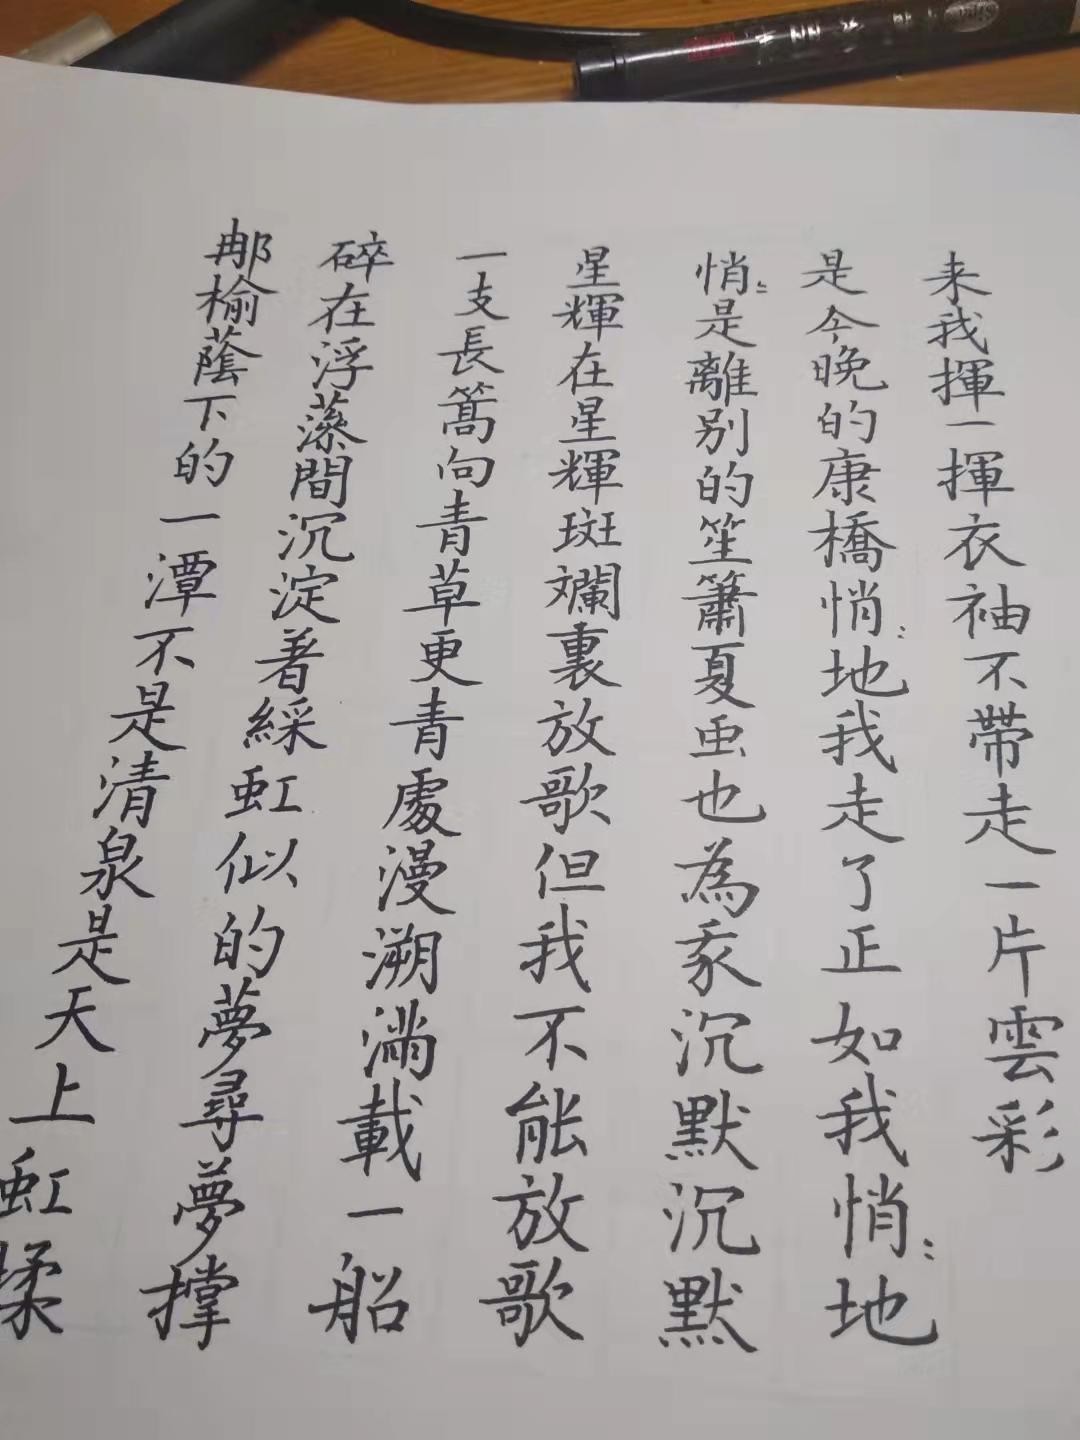 那榆蔭下的一潭不是清泉是天上虹揉
碎在浮藻間沉淀着綵虹似的夢尋夢撑
一支長篙向青草更青處漫溯滿載一船
星輝在星輝斑斕裏放歌但我不能放歌
悄〻是離别的笙簫夏虫也為我沉默沉默
是今晚的康橋悄〻地我走了正如我悄〻地
来我揮一揮衣袖不帶走一片雲彩